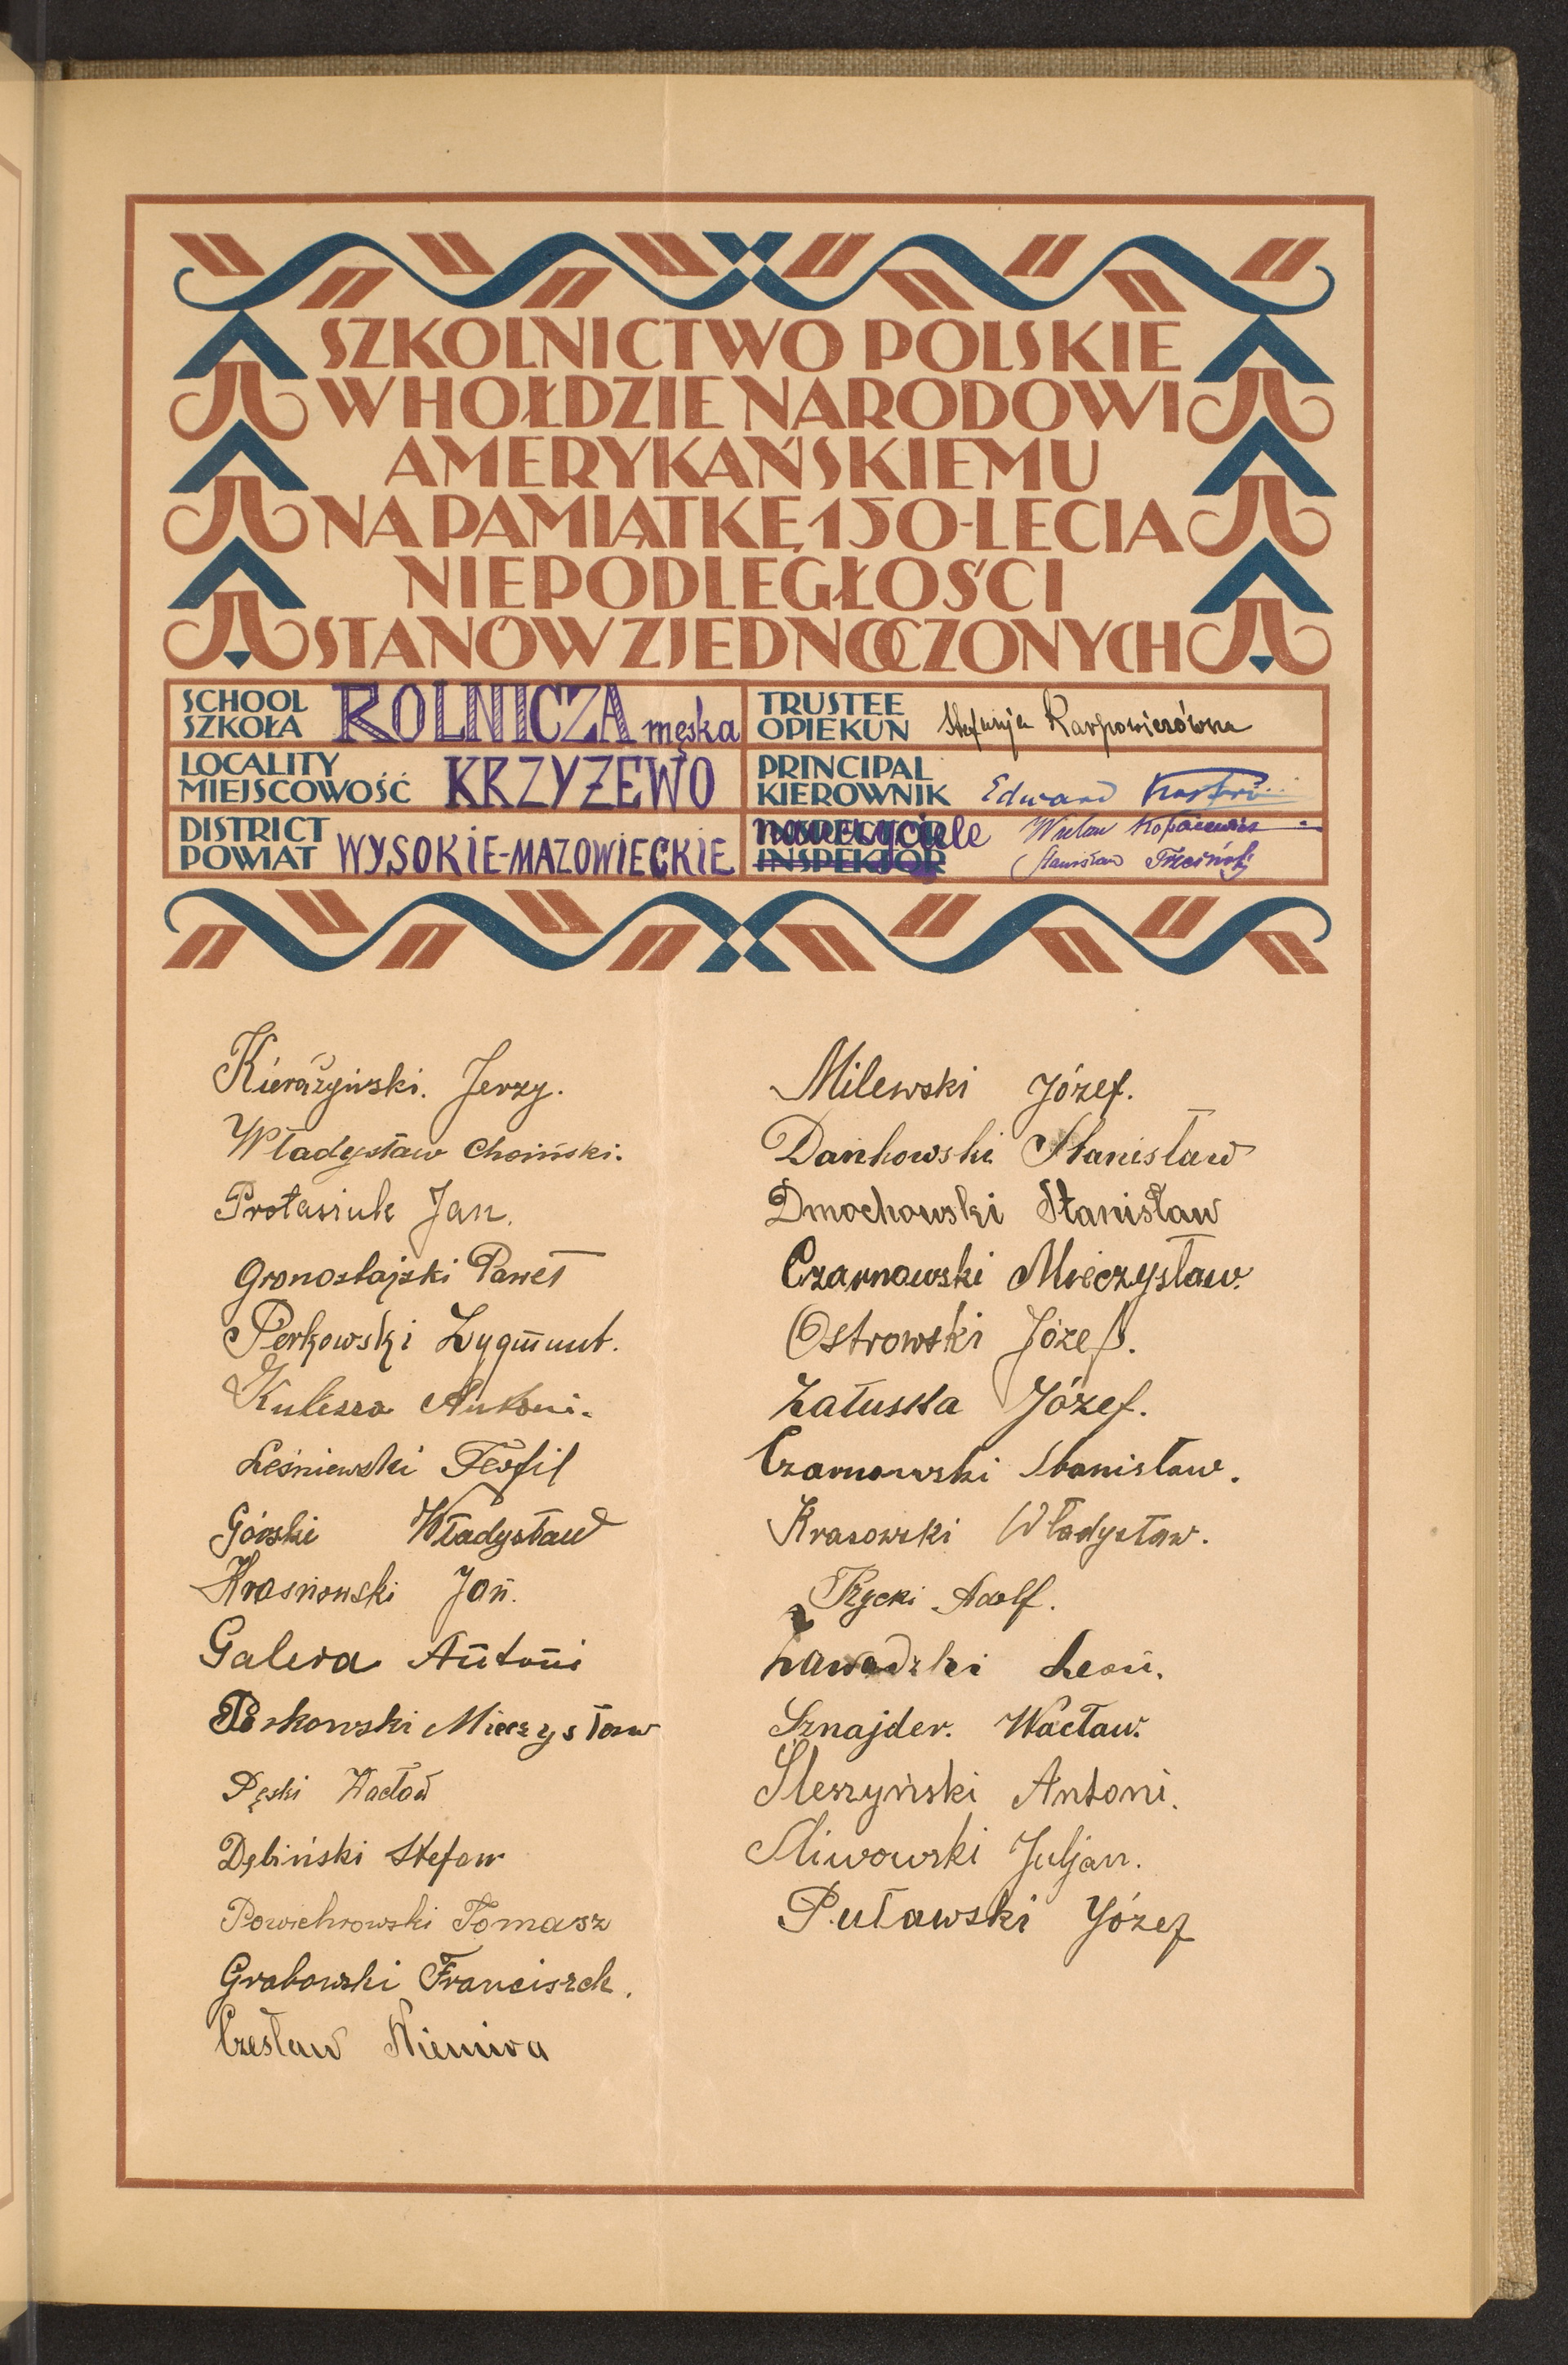 SZKOLNICTWO POLSKIE
W HOŁDZIE NARODOWI
AMERYKAŃSKIEMU
NA PAMIĄTKĘ 150-LECIA
NIEPODLEGŁOŚCI
STANÓW ZJEDNOCZONYCH
SCHOOL
SZKOŁA ROLNICZA męska
TRUSTEE
OPIEKUN Stefanja Karpowiczówna
LOCALITY
MIEJSCOWOŚĆ KRZYŻEWO
PRINCIPAL
KIEROWNIK Edward
DISTRICT
POWIAT WYSOKIE-MAZOWIECKIE
nauczyciele Wacław Kopaczewicz
INSPEKTOR Stanisław Trzciński
Kierażyński. Jerzy.
Władysław Choiński.
Protasiuk Jan.
Gronostajski Paweł
Perkowski Zygmunt.
Kulesza Antoni.
Leśniewski Teofil
Górski Władysław
Krasnowski Jan.
Galera Antoni
Perkowski Mieczysław
Pęski Wacław
Dębiński Stefan
Powichrowski Tomasz
Grabowski Franciszek.
Czesław Niemira
Milewski Józef.
Dankowski Stanisław
Dmochowski Stanisław
Czarnowski Mieczysław.
Ostrowski Józef.
Załuska Józef.
Czarnowski Stanisław.
Krasowski Władysław.
Adolf.
Zawadzki Leon.
Sznajder. Wacław.
Śleszyński Antoni.
Śliwowski Juljan.
Puławski Józef